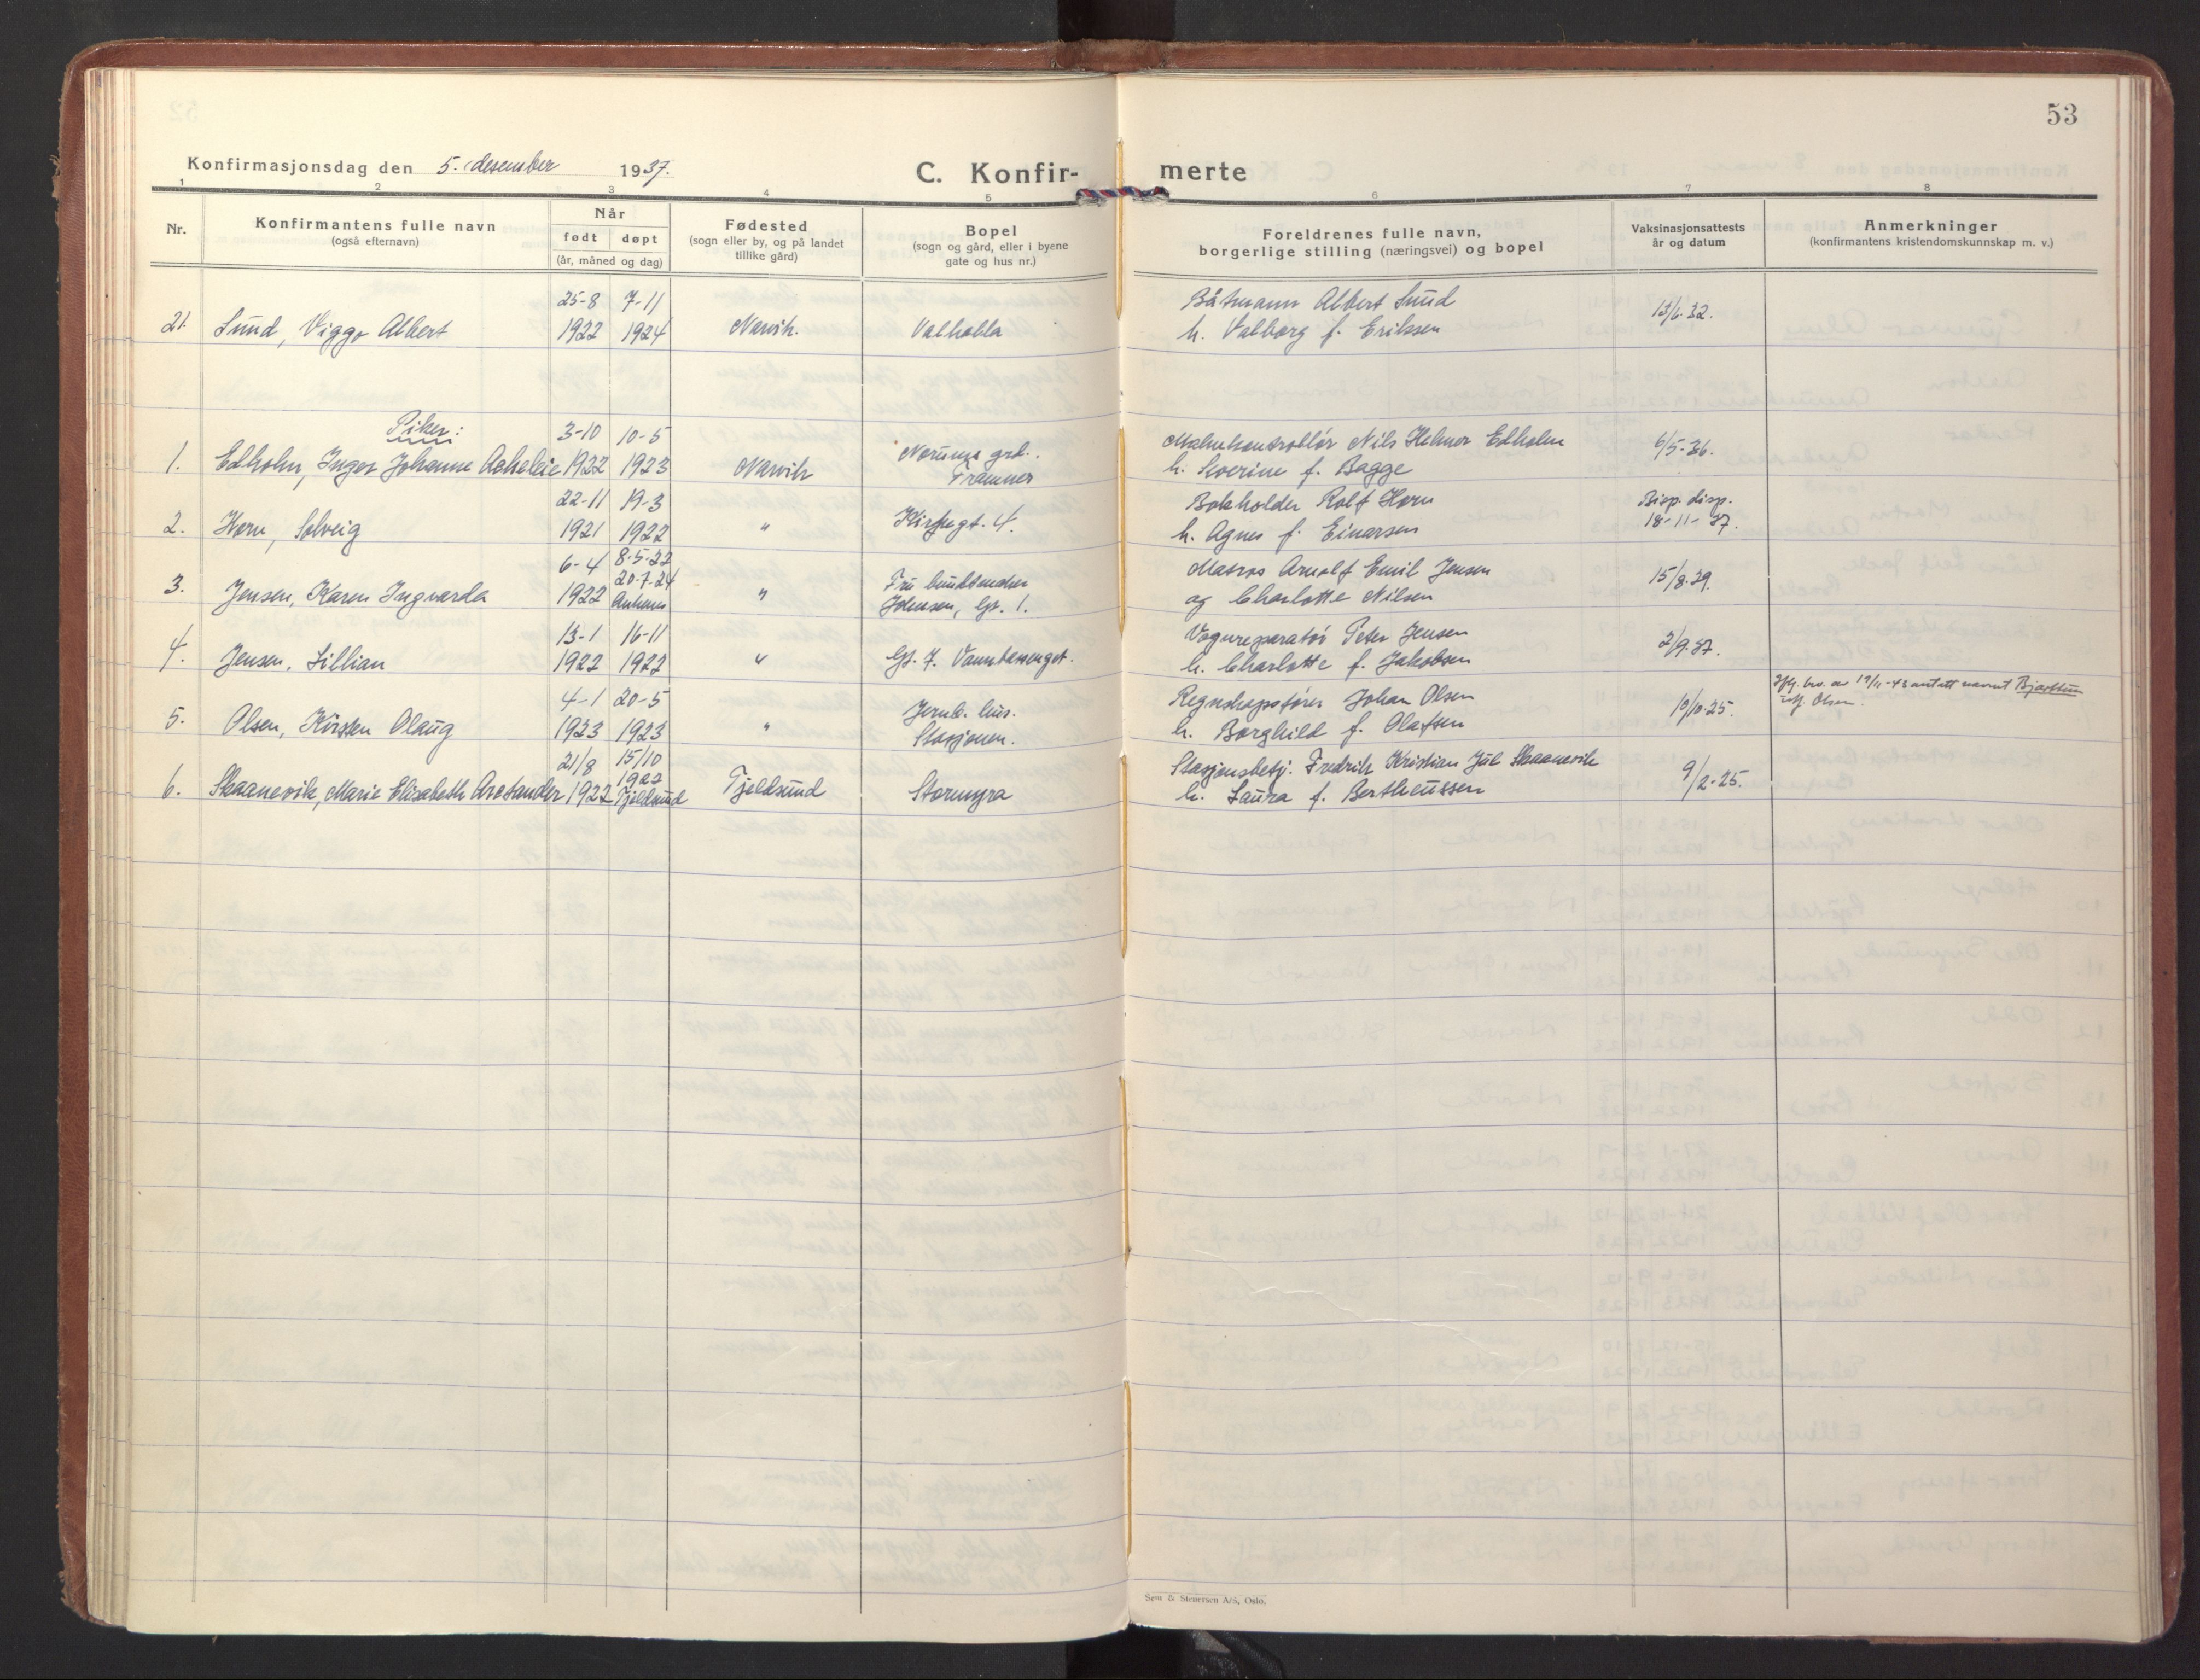 53
Konfirmasjonsdag den 5. desember 1937.
C. Konfirmerte
1 2 3 4 5 6 7 8
Nr.
Konfirmantens fulle navn
(også efternavn)
Når
født døpt
(år, måned og dag)
Fødested
(sogn eller by, og på landet
tillike gård)
Bopel
(sogn og gård, eller i byene
gate og hus nr.)
Foreldrenes fulle navn,
borgerlige stilling (næringsvei) og bopel
Vaksinasjonsattests
år og datum
Anmerkninger
(konfirmantens kristendomskunnskap m. v.)
25-8 7-11 Båtmann Albert Sund
21. Sund, Viggo Albert 1922 1924 Narvik. Valhalla h. Valborg f. Eriksen 13/6-32.
Piker:
3-10 10-5 Norums grd. Malmkontrollør Nils Helmer Edholm 6/5-36.
1. Edholm, Inger Johanne 1922 1923 Narvik Framnes h. Severine f. Bagge
22-11 19-3 Bokholder Rolf Horn Bisp. disp.
2. Horn, Solveig 1921 1922 " Kirkegt. 4. h. Agnes f. Einarsen 18-11-37.
6-4 8-5-22 Fru Matros Arnolf Emil Jensen
20-7-24
3. Jensen, Karen Ingvarda 1922 Ankenes " Johnsen, Gt. 1. og Charlotte Nilsen 15/8-29.
13-1 16-11 Vognreparatør Peter Jensen
4. Jensen, Lillian 1922 1922 " Gt. 7. Vannbassenget. h. Charlotte f. Jakobsen 2/9-37.
4-1 20-5 Jernb. hus. Regnskapsfører Johan Olsen Ifg. bev. av 19/11-43 antatt navnet Bjarttun
5. Olsen, Kirsten Olaug 1923 1923 " Stasjonen. h. Borghild f. Olafsen 10/10-25. istf. Olsen.
21/8 15/10 Stasjonsbetj. Fredrik Kristian Jul Skaanevik
1922
6. Skaanevik, Marie Elisabeth Arctander 1922 Tjeldsund Tjeldsund Stormyra h. Laura f. Bertheussen 9/2-25.
Sem & Stenersen A/S, Oslo.